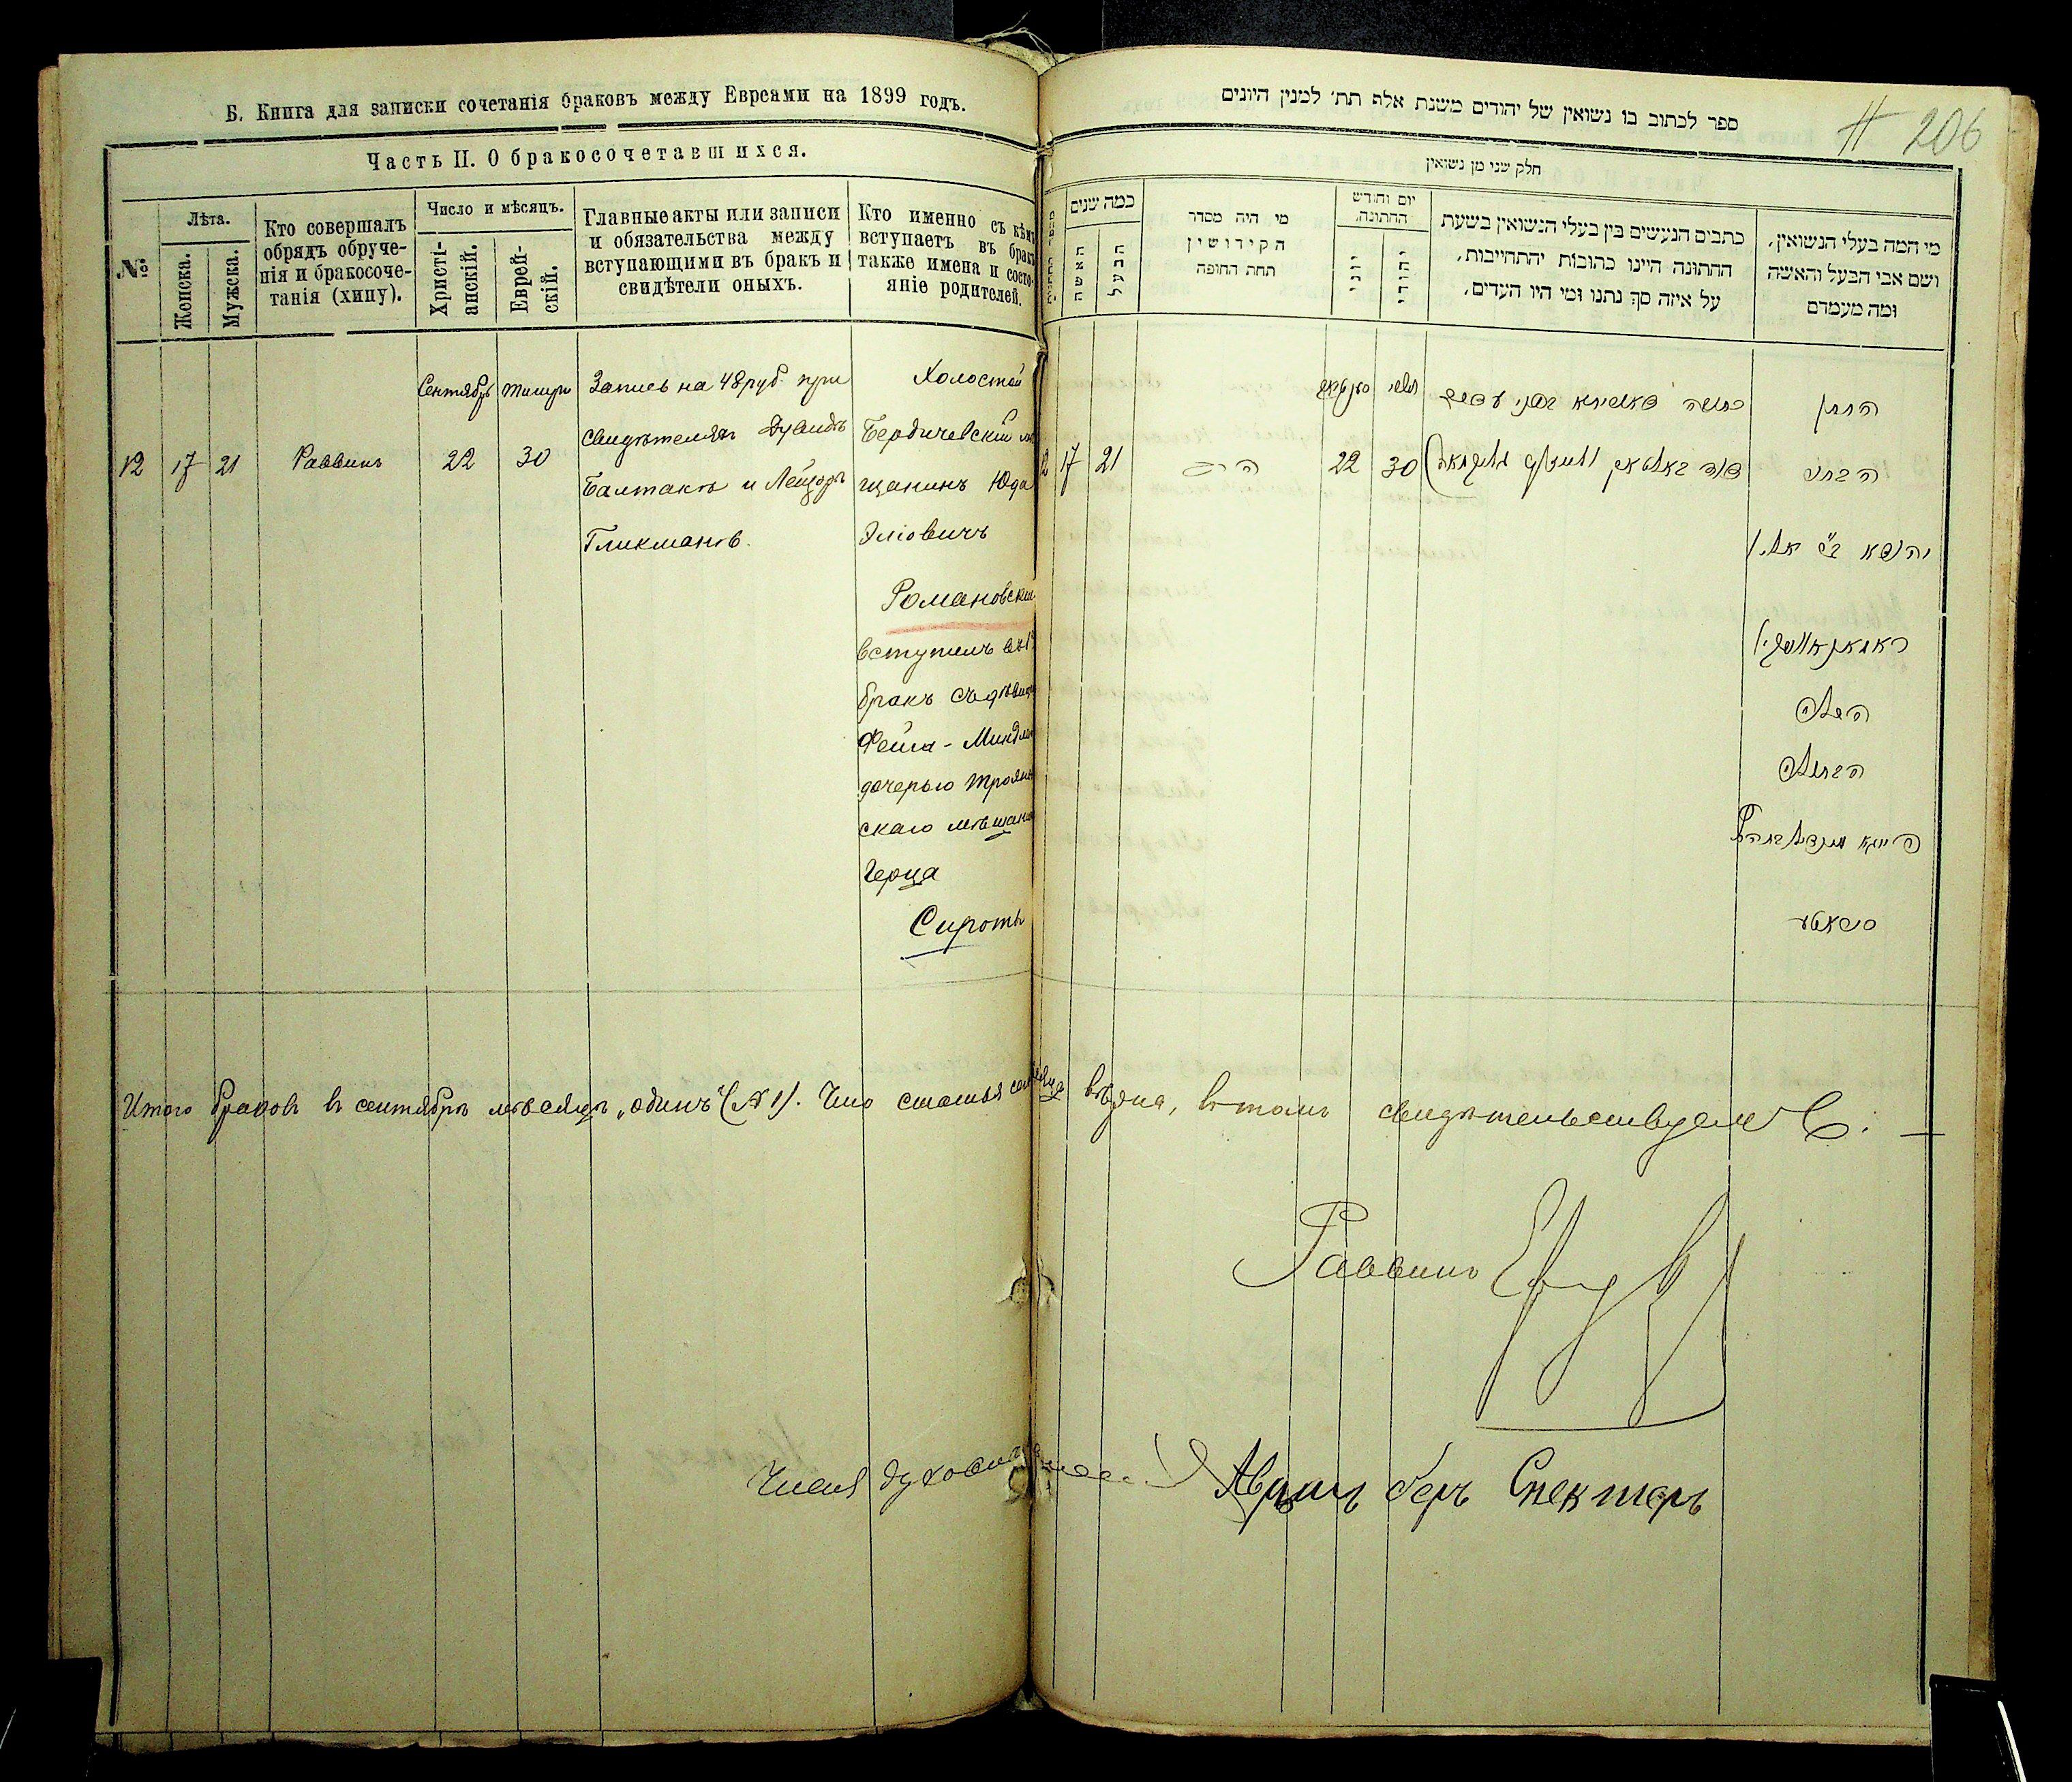 Б. Книга для записки сочетанія браковъ между Евреями на 1899 годъ.
Часть II. О бракосочетавшихся.
№
Лѣта.
Женска.
Мужска.
Кто совершалъ
обрядъ обруче-
нія и бракосоче-
танія (хипу).
Число и мѣсяцъ.
Христі-
анскій.
Еврей-
скій.
Главные акты или записи
и обязательства между
вступающими въ бракъ и
свидѣтели оныхъ.
Кто именно съ кѣмъ
вступаетъ въ бракъ
также имена и состо-
яніе родителей.
12
17
21
Раввинъ
Сентябрь
22
Тишри
30
Запись на 48 руб при
свидѣтеляхъ Дувидъ
Балтакъ и Лейзоръ
Гликманъ.
Холостой
Бердичевскій мѣ
щанинъ Юда
Эліовичъ
Романовскій
вступилъ въ 1й
бракъ съ дѣвицей
Фейга-Миндля
дочерью Троян
скаго мѣщанина
Герца
Сироты
ספר לכתוב בו נשואין של יהודים משנת אלף תת׳ למנין היונים
206
חלק שני מן נשואין
כמה שנים
האשה
הבעל
מי היה מסדר
הקידושין
תחת החופה
יום וחודש
החתונה.
יוני
יהודי
כתבים הנעשים בין בעלי הנשואין בשעת
החתונה היינו כתובות יהתחייבות,
על איזה סך נתנו ומי היו העדים.
מי המה בעלי הנשואין,
ושם אבי הבעל והאשה
ומה מעמדם
12
17
21
הרב
22
תשרי
30
החתן
הבחור
יהודא ב״ר אלי׳
ראמאנאווסקי
הכלה
הבתולה
סיראטע
Итого браковъ въ сентябрѣ мѣсяцѣ „одинъ" (№ 1). Что статья сія вѣрна, въ томъ свидѣтельствуемъ.
Раввинъ
Членъ духовнаго
Аврумъ Беръ Спекторъ